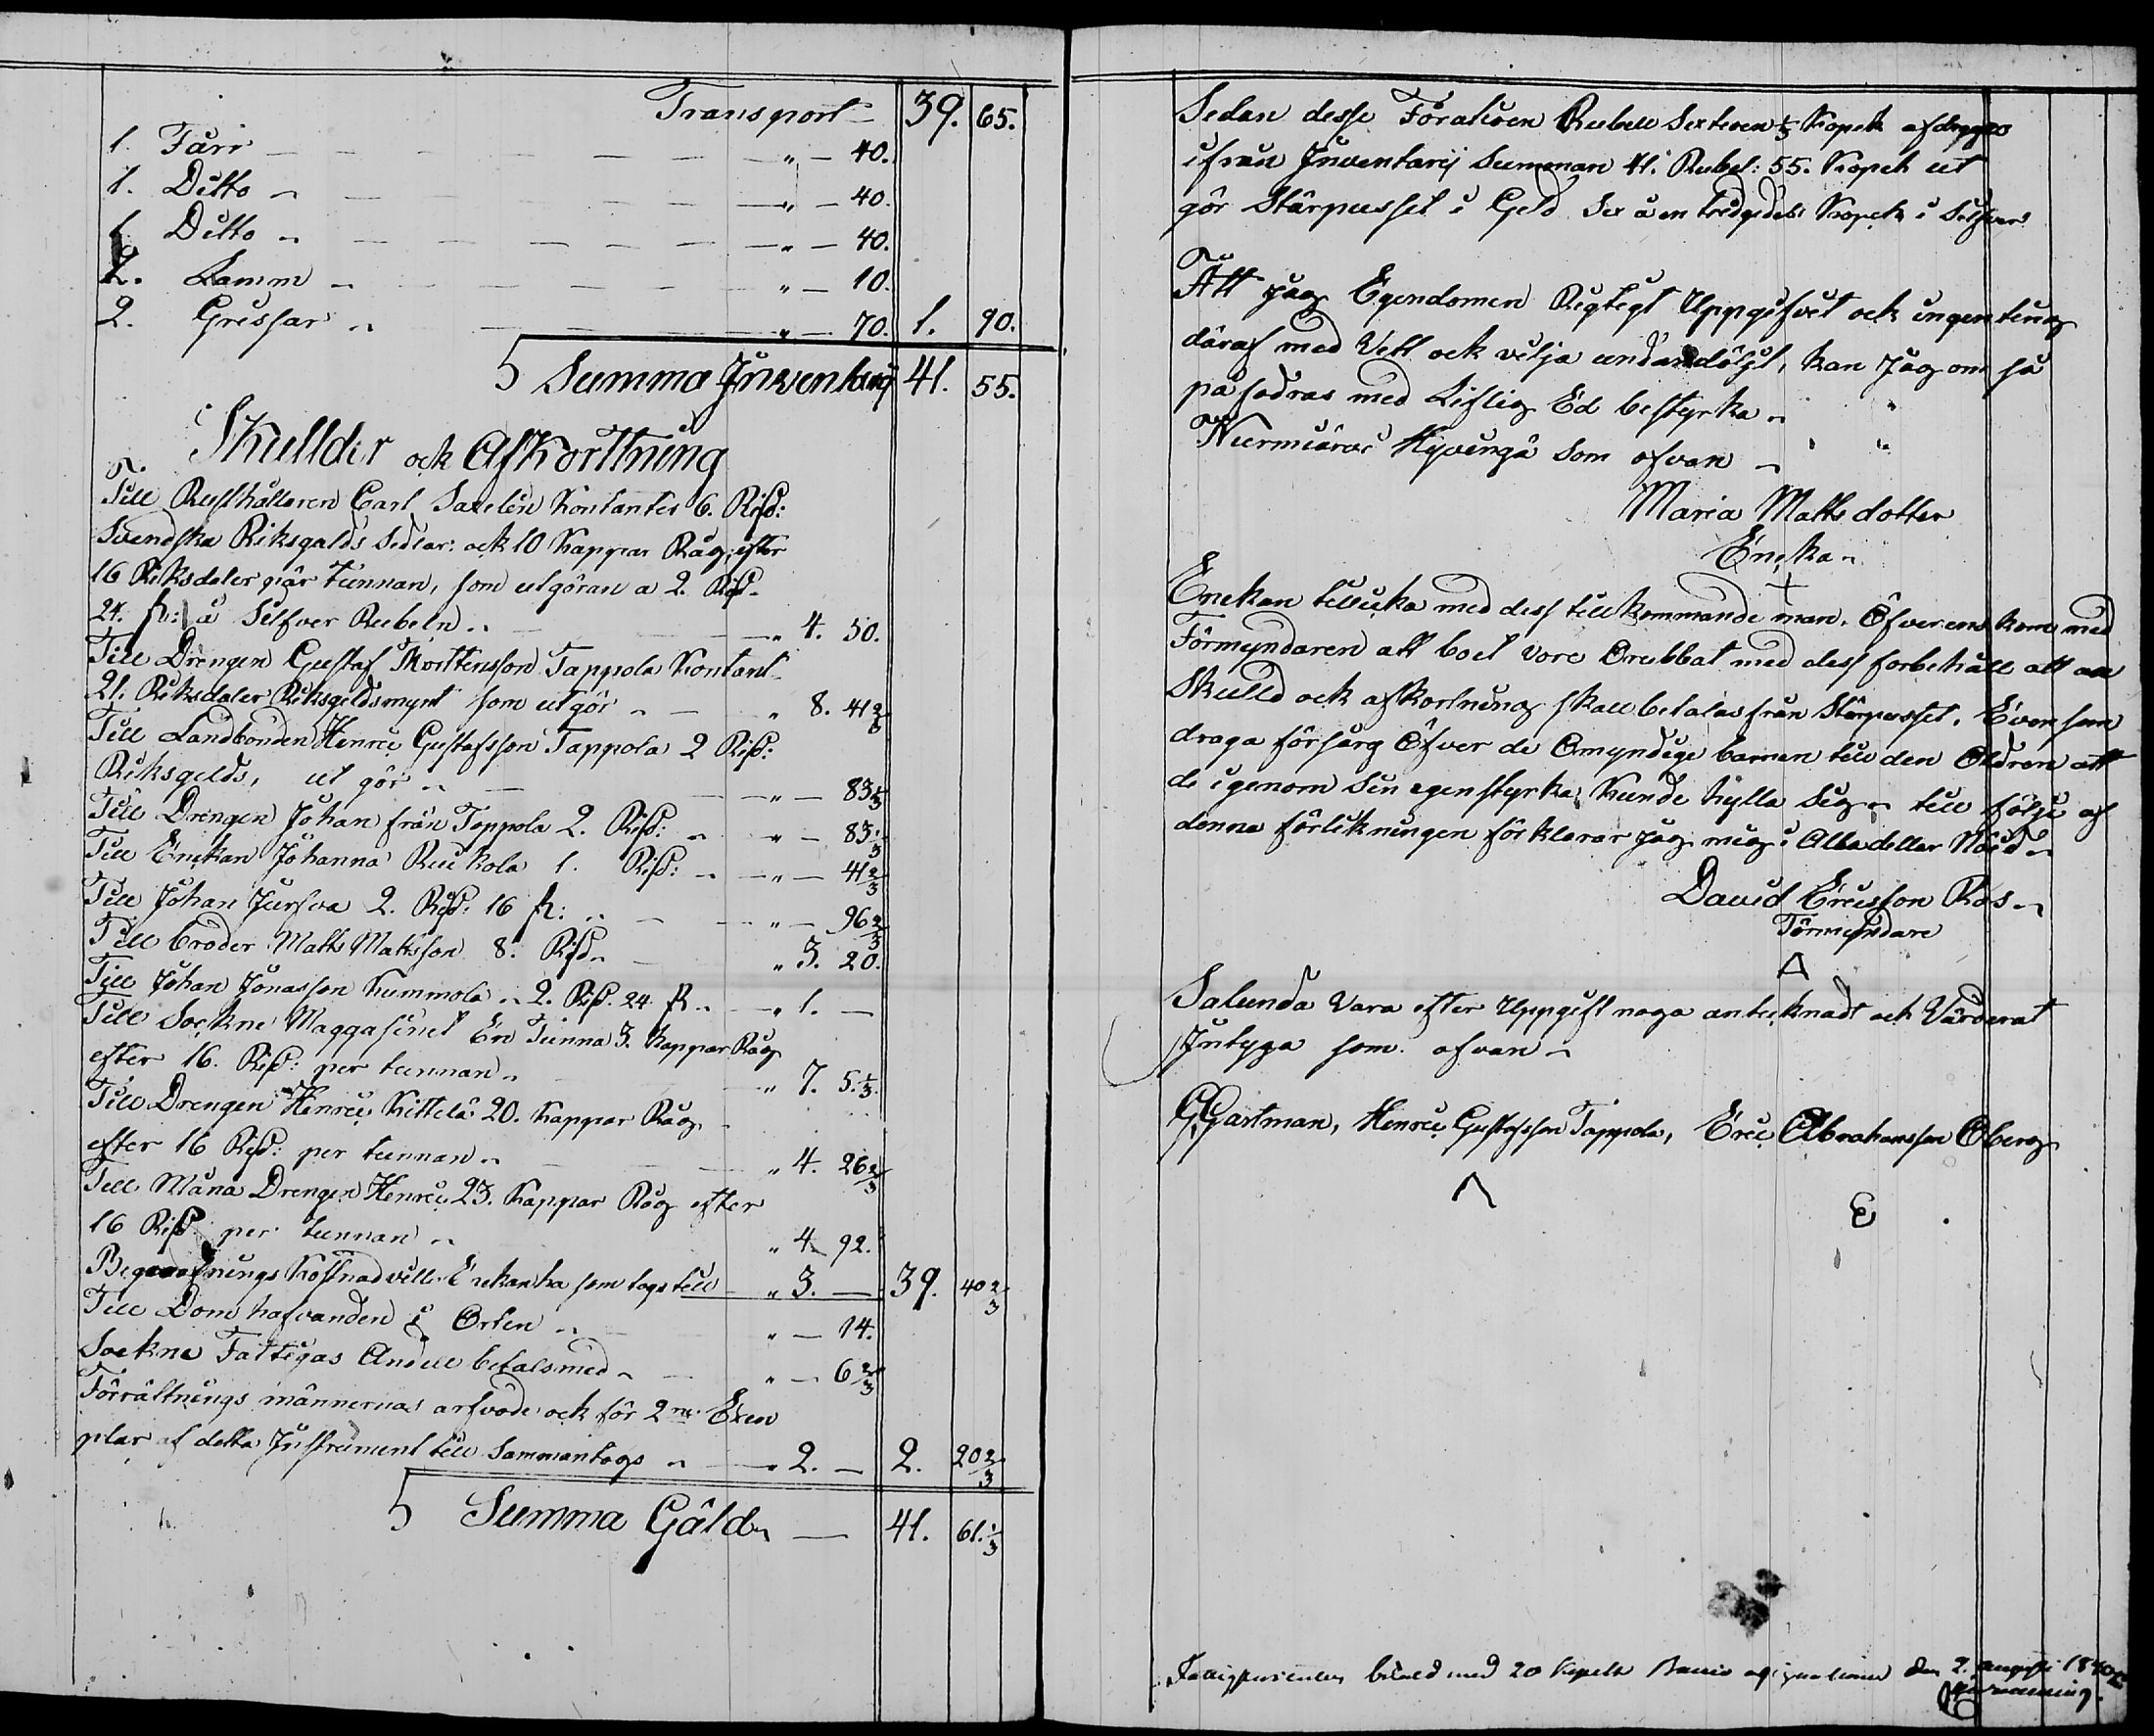 Transport 39. 65.
1. Fårr " — 40.
1. Ditto " — 40.
1. Ditto " — 40.
2. Lamm " — 10.
2. Grissar " — 70. 1. 90.
Summa Inventarij 41. 55.
Skullder ock Afkorttning
Till Rusthållaren Carl Saxelin Kontanter 6. Risd:
Svendska Riksgalds Sedlar: ock 10 Kappar Råg, efter
16 Riksdaler pär tunnan, som utgöran a 2. Risd
24. sk: å Silfver Rubeln " 4. 50.
Till Drengen Gustaf Morttensson Tappola Kontant
21. Riksdaler Riksgeldsmynt som utgör " 8. 41 2/6
Till Landbonden Henric Gustafsson Tappola 2 Risd:
Riksgelds, ut gör " — 83 1/3
Till Drengen Johan från Tappola 2. Risd: " — 83 1/3
Till Enekan Johanna Ruckola 1. Risd: " — 41 2/3
Till Johan Jursva 2. Risd: 16 sk: " — 96 2/3
Till broder Matts Mattsson 8. Risd " 3. 20.
Till Johan Jonasson Kummola 2. Risd. 24. sk " 1. —
Till Sockne Maggasinet En Tunna 3. Kappar Råg
efter 16. Risd: per tunnan " 7. 5. 1/3
Till Drengen Henric Kittelä 20. Kappar Råg
efter 16 Risd: per tunnan " 4. 26 2/3
Till Måna Drengen Henric 23. Kappar Råg efter
16 Risd per tunnan " 4. 92.
Begrafnings Kostnad ville Enekan ha som togs till " 3. — 39. 40 2/3
Till Dom hafvanden i Orten " — 14.
Sockne Fattigas Andell betals med " — 6 2/3
Förrättnings männernas arfvode ock för 2ne Exem
plar af detta Instrument till sammantogs " 2. — 2. 20 2/3
Summa Gäld 41. 61. 1/3
Sedan desse Föratioen Rubell Sextioen 1/3 Kopek afdrages
ifrån Inventarij Summan 41. Rubel: 55. Kopek ut
gör Stärpusset i Geld Sex å en tredjedels Kopek i Silfver
Att jag Egendomen Rigtigt Uppgifvit ock ingenting
däraf med Vett ock vilja undandöljt, kan jag om så
påfodras med Liflig Ed bestyrka
Nurmiärvi Hyvingä som ofvan
Maria Matts dotter
Encka
Enekan tillicka med dess tillkommande man, Öfverens kom med
Förmyndaren att boet vore Orubbat med dess forbehåll att all
Skulld ock afkortning skall betalas från Stärpusset. Even som
draga försörg Öfver de Omyndige barnen till den Oldren att
de igenom sin egen styrka kunde hylla sig till följe af
denna förlikningen förklarar jag mig i Alla dellar Nöid
David Ericsson Ros
Förmyndare
Salunda vara efter Uppgift noga antecknadt och Värderat
Intyga som ofvan
G. Gartman, Henric Gustafsson Tappola, Eric Abrahamsson Oberg
E
Fattigprocenten betald med 20 Kopek Banco den 2. Augusti 1840